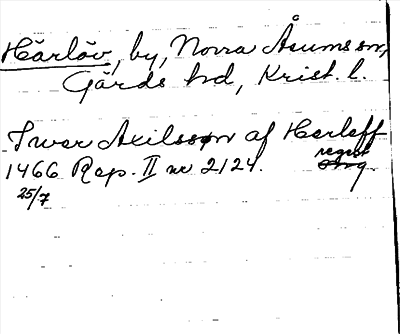 Härlöv, by, Norra Åsums sn,
Gärds hd, Krist. l.
Iwer Axilsson af Herleff
1466 Rep. II nr 2124. regest
25/7